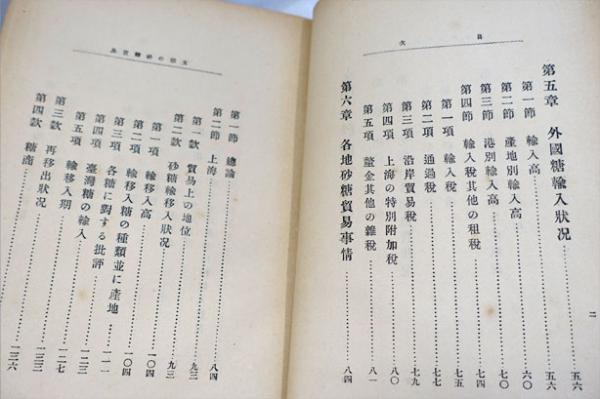 目次
第五章 外國糖輸入狀況……五六
第一節 輸入高……五六
第二節 產地別輸入高……六〇
第三節 港別輸入高……七〇
第四節 輸入稅其他の租稅……七四
第一項 輸入稅……七五
第二項 通過稅……七七
第三項 沿岸貿易稅……七九
第四項 上海の特別附加稅……八〇
第五項 釐金其他の雜稅……八一
第六章 各地砂糖貿易事情……八四
二
第一節 總論……八四
第二節 上海
第一款 貿易上の地位……九三
第二款 砂糖輸移入狀況……九三
第一項 輸移入高……一〇四
第二項 輸移入糖の種類並に產地……一〇四
第三項 各糖に對する批評……一一一
第四項 臺灣糖の輸入……一二三
第五項 輸移入期……一二七
第三款 再移出狀況……一三三
第四款 糖商……一三六